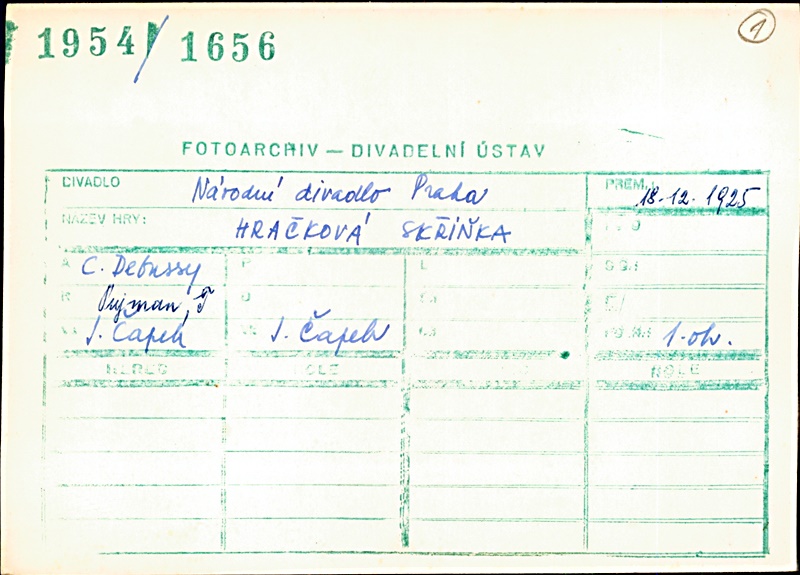 1954/1656
1
FOTOARCHIV — DIVADELNÍ ÚSTAV
DIVADLO Národní divadlo Praha PREM.: 18.12.1925
NÁZEV HRY: HRAČKOVÁ SKŘÍŇKA
A C. Debussy P L SG.:
R Pujman, F
J. Čapek J. Čapek 1.ob.
HEREC ROLE ROLE